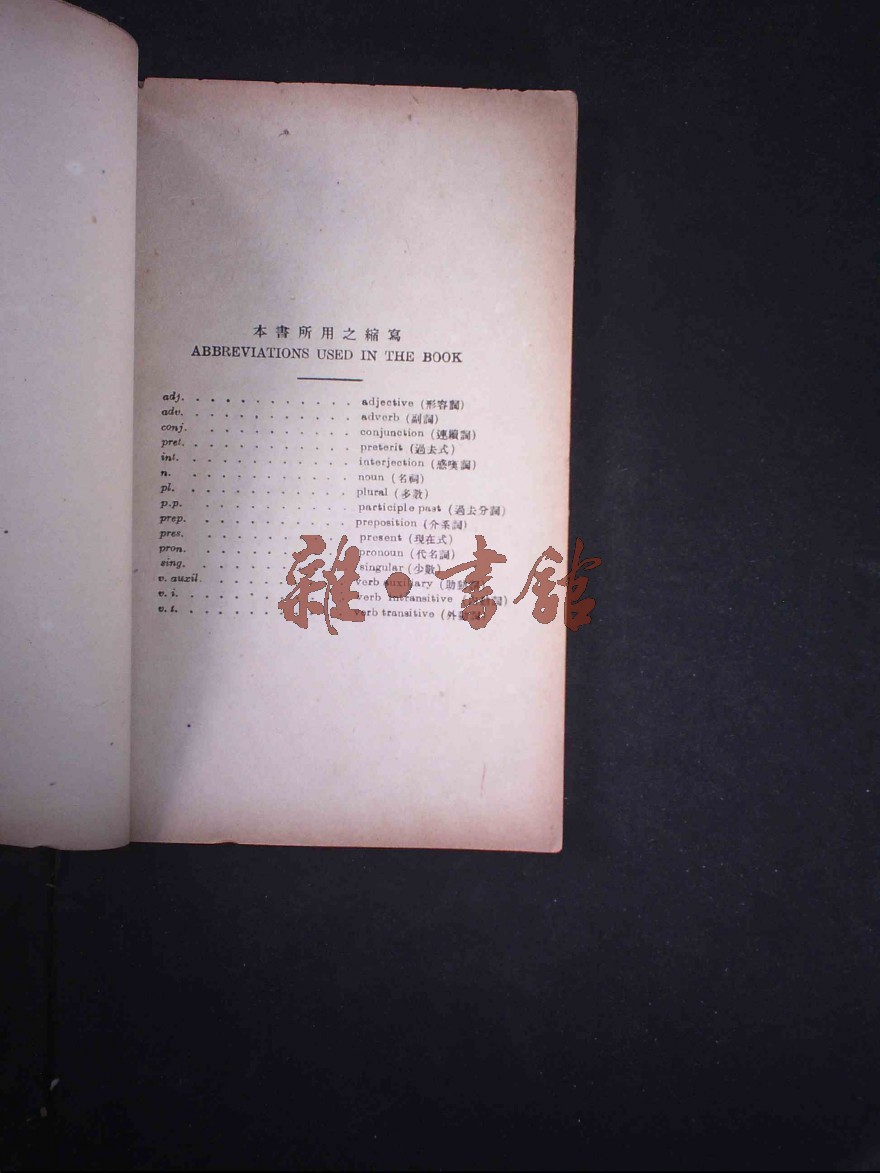 本書所用之縮寫
ABBREVIATIONS USED IN THE BOOK
adj. . . . . . . . . . . . adjective (形容詞)
adv. . . . . . . . . . . . adverb (副詞)
conj. . . . . . . . . . . . conjunction (連續詞)
pret. . . . . . . . . . . . preterit (過去式)
int. . . . . . . . . . . . interjection (感嘆詞)
n. . . . . . . . . . . . noun (名詞)
pl. . . . . . . . . . . . plural (多數)
p.p. . . . . . . . . . . . participle past (過去分詞)
prep. . . . . . . . . . . . preposition (介系詞)
pres. . . . . . . . . . . . present (現在式)
pron. . . . . . . . . . . . pronoun (代名詞)
sing. . . . . . . . . . . . singular (少數)
v. auxil. . . . . . . . . . verb auxiliary (助動詞)
v. i. . . . . . . . . . . . verb intransitive
v. t. . . . . . . . . . . . verb transitive (外動詞)
雜·書館